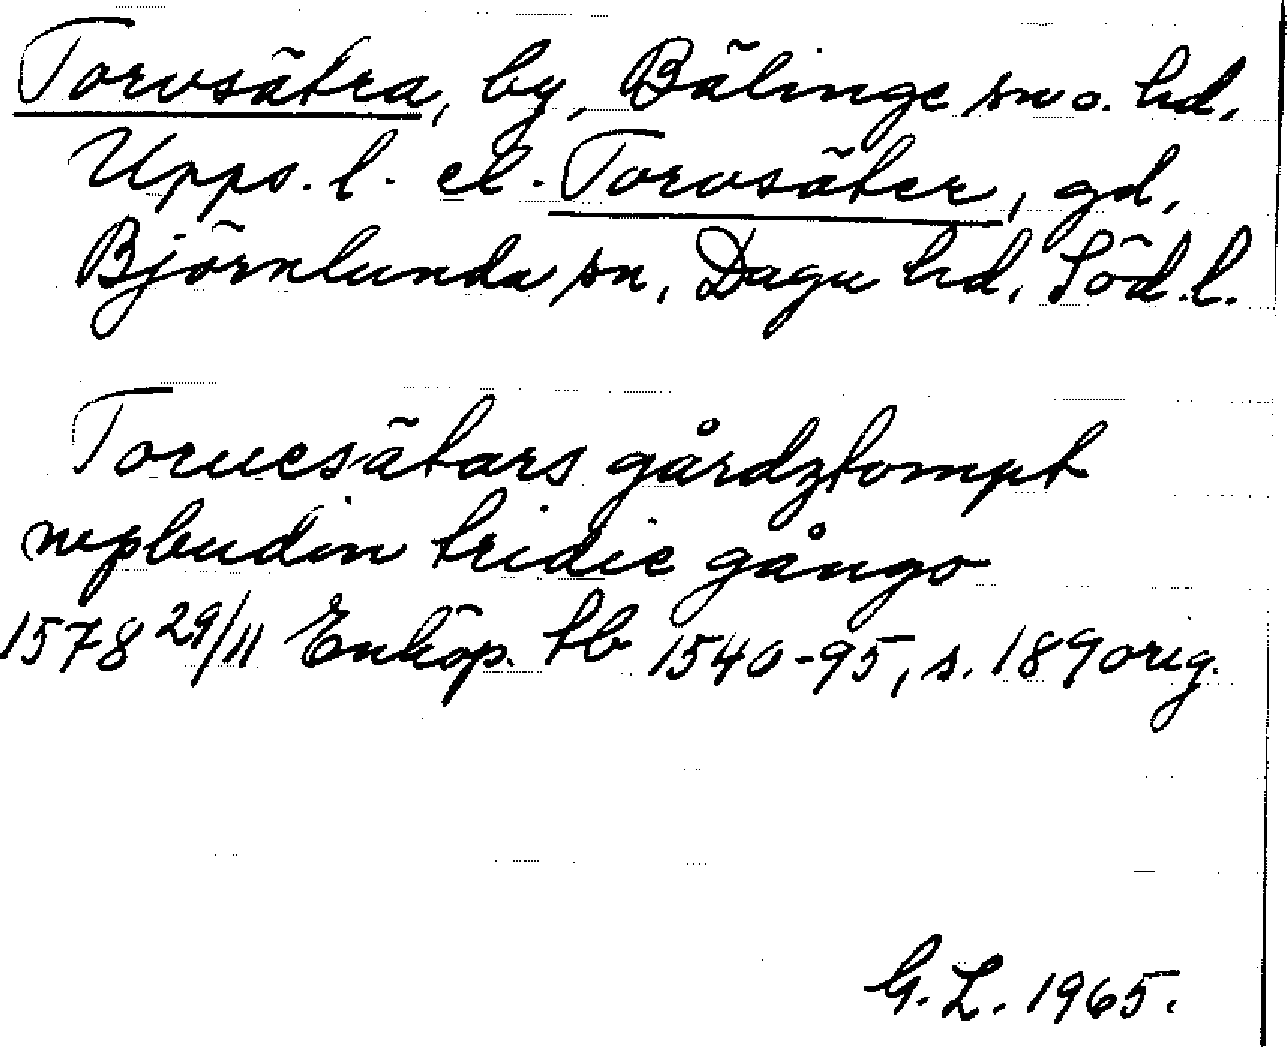 Torvsätra, by, Bälinge sn o. hd,
Upps. l. el. Torvsäter, gd,
Björnlunda sn, Daga hd, Söd. l.
Toruesätars gårdztompt
wpbudin tridie gångo
1578 29/11 Enköp. tb 1540-95, s. 189 orig.
G. L. 1965.